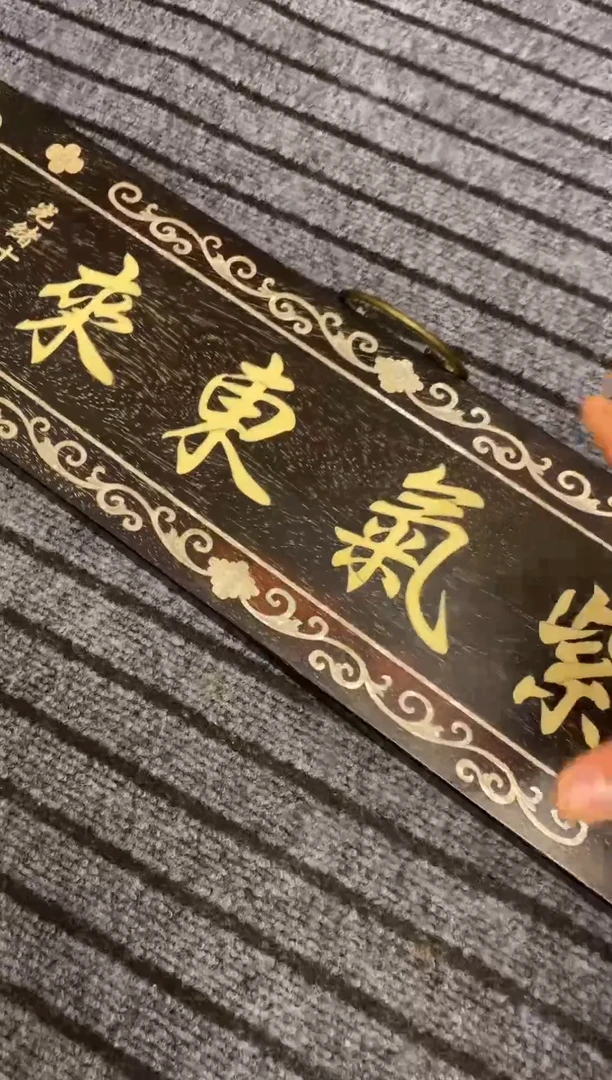 紫氣東來
光緒十